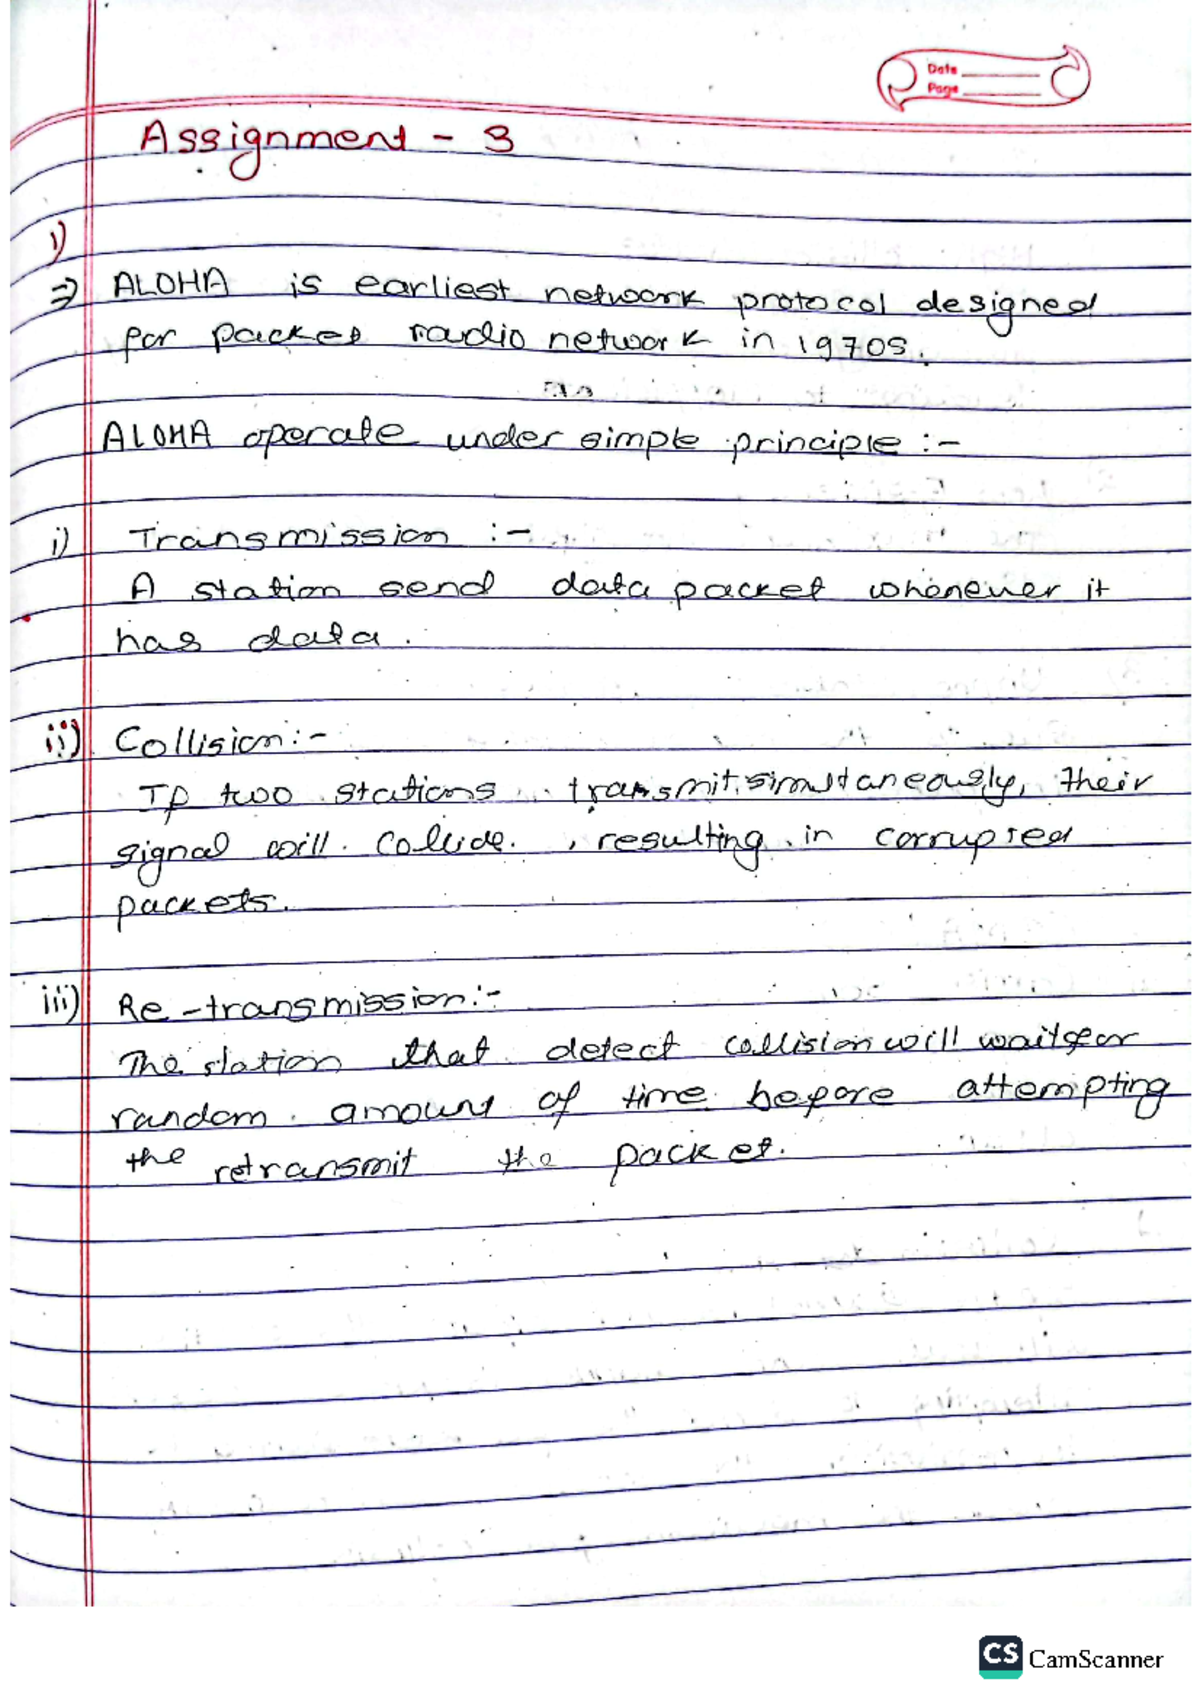 Date
Page
Assignment - 3
1)
⇒ ALOHA is earliest network protocol designed
for packet radio network in 1970s.
ALOHA operate under simple principle :-
i) Transmission :-
A station send data packet whenever it
has data.
ii) Collision:-
If two stations transmit simultaneously, their
signal will collide. , resulting in corrupted
packets.
iii) Re-transmission:-
The station that detect collision will wait for
random amount of time before attempting
the retransmit the packet.
CS CamScanner